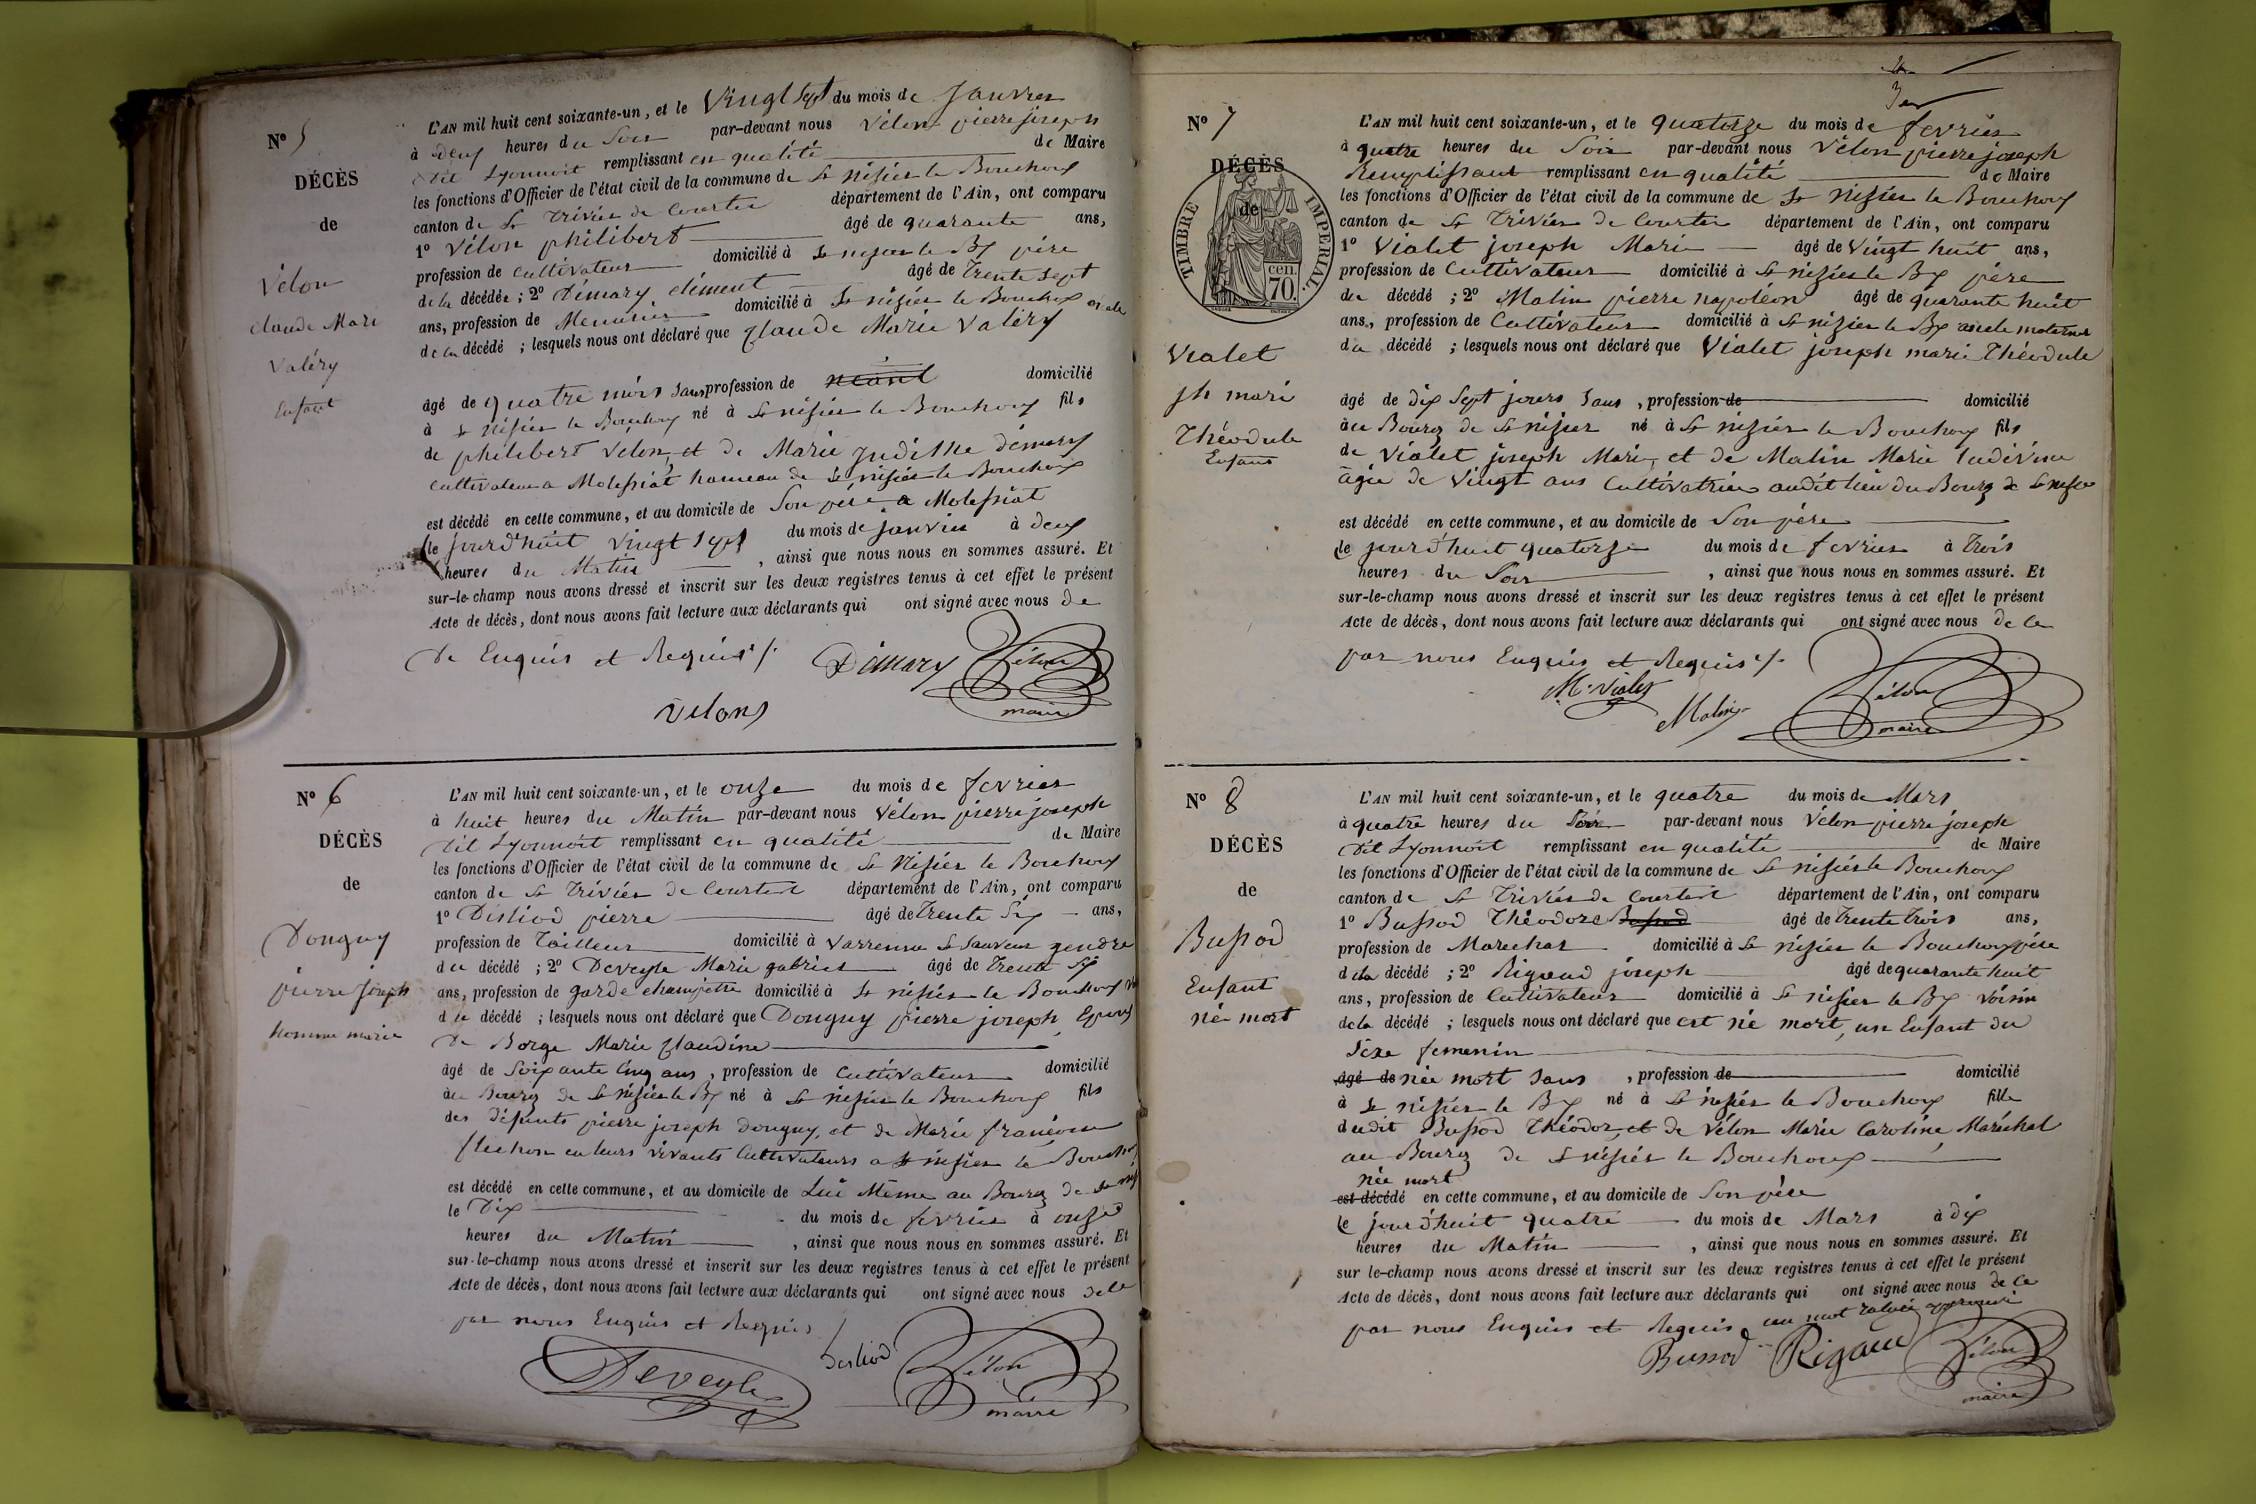 N° 5
DÉCÈS
de
Vélon
Claude Mari
Valéry
Enfant
L'AN mil huit cent soixante-un, et le Vingt Sept du mois de Janvier
à deux heures du Soir par-devant nous Vélon pierre joseph
dit Lyonnoit remplissant en qualité de Maire
les fonctions d'Officier de l'état civil de la commune de St nisier le Bouchoux
canton de St Trivier de Courtes département de l'Ain, ont comparu
1° Vélon philibert âgé de quarante ans,
profession de Cultivateur domicilié à St nisier le Bx père
de la décédée ; 2° Démary clément âgé de Trente Sept
ans, profession de Menuisier domicilié à St nisier le Bouchoux oncle
de la décédé ; lesquels nous ont déclaré que Claude Marie Valéry
âgé de quatre mois Sans profession de néant domicilié
à St nisier le Bouchoux né à St nisier le Bouchoux fils
de philibert Vélon, et de Marie Judithe démary
Cultivateur a Molessiat hameau de St nisier le Bouchoux
est décédé en cette commune, et au domicile de Son père a Molessiat
le jourd'huit Vingt Sept du mois de janvier à deux
heures du Matin , ainsi que nous nous en sommes assuré. Et
sur-le-champ nous avons dressé et inscrit sur les deux registres tenus à cet effet le présent
Acte de décès, dont nous avons fait lecture aux déclarants qui ont signé avec nous de
De Enquis et Requis /.
Démary Vélon
maire
Velon
N° 6
DÉCÈS
de
Donguy
pierre joseph
homme marié
L'AN mil huit cent soixante-un, et le onze du mois de fevrier
à huit heures du Matin par-devant nous Vélon pierre joseph
dit Lyonnoit remplissant en qualité de Maire
les fonctions d'Officier de l'état civil de la commune de St Nisier le Bouchoux
canton de St Trivier de Courtes département de l'Ain, ont comparu
1° Disliod pierre âgé de Trente Six ans,
profession de Tailleur domicilié à Varrenne St Sauveur gendre
du décédé ; 2° Deveyle Marie gabriel âgé de Trente Six
ans, profession de garde champêtre domicilié à St nisier le Bouchoux
du décédé ; lesquels nous ont déclaré que Donguy pierre joseph Epoux
De Borge Marie Claudine
âgé de Soixante Cinq ans , profession de Cultivateur domicilié
au Bourg de St nisier le Bx né à St nisier le Bouchoux fils
des défunts pierre joseph Donguy, et de Marie françoise
flechon en leurs vivants Cultivateurs a St nisier le Bouchoux
est décédé en cette commune, et au domicile de Lui Même au Bourg de St nisi
le Dix du mois de fevrier à onze
heures du Matin , ainsi que nous nous en sommes assuré. Et
sur-le-champ nous avons dressé et inscrit sur les deux registres tenus à cet effet le présent
Acte de décès, dont nous avons fait lecture aux déclarants qui ont signé avec nous de le
par nous Enquis et Requis
Deveyle Disliod Vélon
maire
N° 7
DÉCÈS
de
TIMBRE IMPERIAL
70 cen.
Vialet
jh mari
Théodule
Enfant
L'AN mil huit cent soixante-un, et le quatorze du mois de fevrier
à quatre heures du Soir par-devant nous Vélon pierre joseph
Remplissant remplissant en qualité de Maire
les fonctions d'Officier de l'état civil de la commune de St Nisier le Bouchoux
canton de St Trivier de Courtes département de l'Ain, ont comparu
1° Vialet joseph Marie âgé de Vingt huit ans,
profession de Cultivateur domicilié à St nisier le Bx père
du décédé ; 2° Malin pierre napoléon âgé de quarante huit
ans, profession de Cultivateur domicilié à St nisier le Bx aieule maternel
du décédé ; lesquels nous ont déclaré que Vialet joseph marie Théodule
âgé de dix Sept jours Sans , profession de domicilié
au Bourg de St nisier né à St nisier le Bouchoux fils
de Vialet joseph Marie, et de Malin Marie Ludivine
âgée de Vingt ans Cultivatrice audit lieu du Bourg de St nisier
est décédé en cette commune, et au domicile de Son père
le jourd'huit quatorze du mois de fevrier à Trois
heures du Soir , ainsi que nous nous en sommes assuré. Et
sur-le-champ nous avons dressé et inscrit sur les deux registres tenus à cet effet le présent
Acte de décès, dont nous avons fait lecture aux déclarants qui ont signé avec nous de ce
par nous Enquis et Requis /.
M. Vialet
Malin Vélon
maire
N° 8
DÉCÈS
de
Bussod
Enfant
née mort
L'AN mil huit cent soixante-un, et le quatre du mois de Mars
à quatre heures du Soir par-devant nous Vélon pierre joseph
Dit Lyonnoit remplissant en qualité de Maire
les fonctions d'Officier de l'état civil de la commune de St nisier le Bouchoux
canton de St Trivier de Courtes département de l'Ain, ont comparu
1° Bussod Théodore Bussod âgé de Trente Trois ans,
profession de Marechal domicilié à St nisier le Bouchoux père
de la décédé ; 2° Rigaud joseph âgé de quarante huit
ans, profession de Cultivateur domicilié à St nisier le Bx Voisin
de la décédé ; lesquels nous ont déclaré que est né mort, un Enfant du
Sexe femenin
âgé de née mort Sans , profession de domicilié
à St nisier le Bx né à St nisier le Bouchoux fille
dudit Bussod Théodor, et de Vélon Marie Caroline, Maréchal
au Bourg de St nisier le Bouchoux
née mort
est décédé en cette commune, et au domicile de Son père
le jourd'huit quatre du mois de Mars à dix
heures du Matin , ainsi que nous nous en sommes assuré. Et
sur le-champ nous avons dressé et inscrit sur les deux registres tenus à cet effet le présent
Acte de décès, dont nous avons fait lecture aux déclarants qui ont signé avec nous de ce
par nous Enquis et Requis un mot
Bussod Rigaud Vélon
maire